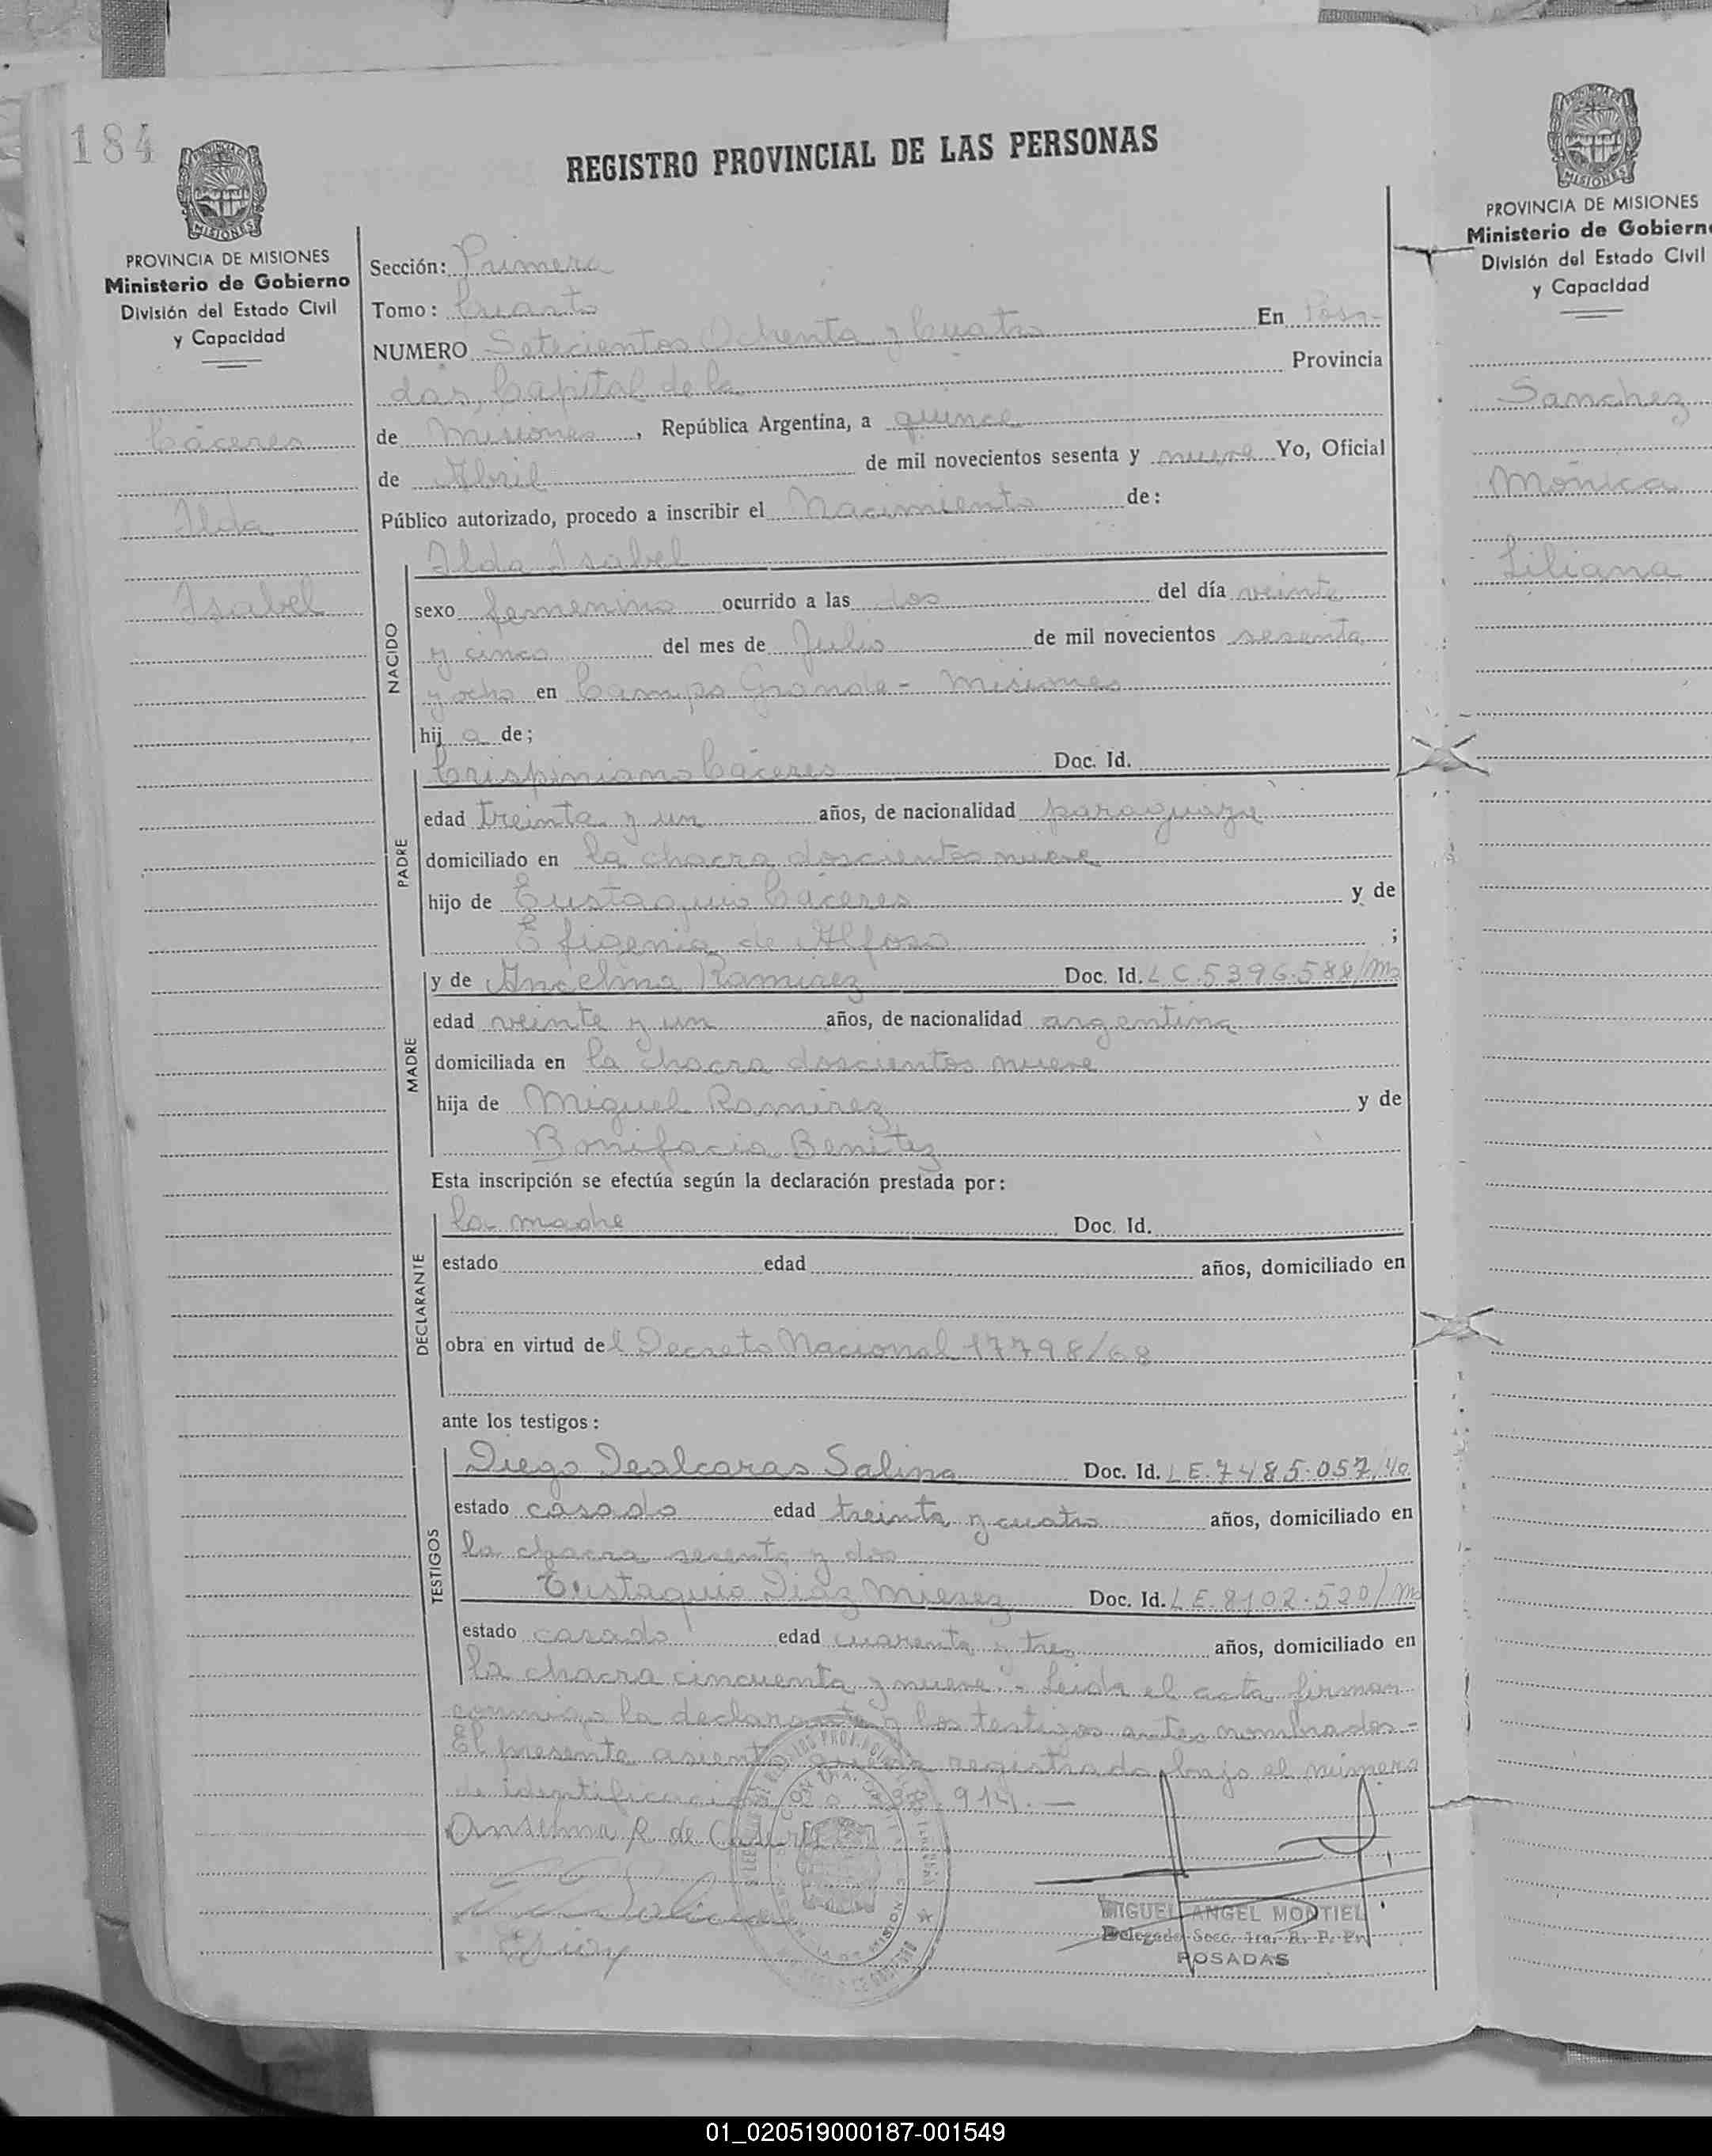 184
REGISTRO PROVINCIAL DE LAS PERSONAS
PROVINCIA DE MISIONES
Ministerio de Gobierno
División del Estado Civil
y Capacidad
Cáceres
Ilda
Isabel
Sección: Primera
Tomo: Cuarto
NUMERO Setecientos Ochenta y Cuatro En Posa-
das, Capital de la Provincia
de Misiones, República Argentina, a quince
de Abril de mil novecientos sesenta y nueve Yo, Oficial
Público autorizado, procedo a inscribir el Nacimiento de:
NACIDO
Ilda Isabel
sexo femenino ocurrido a las dos del día veinte
y cinco del mes de Julio de mil novecientos sesenta
y ocho en Campo Grande - Misiones
hij a de;
PADRE
Crispiniano Cáceres Doc. Id.
edad treinta y un años, de nacionalidad paraguaya
domiciliado en la chacra doscientos nueve
hijo de Eustaquio Cáceres y de
Efigenia de Alfoso ;
MADRE
y de Ancelma Ramirez Doc. Id. L C. 5396.588/Ms
edad veinte y un años, de nacionalidad argentina
domiciliada en la chacra doscientos nueve
hija de Miguel Ramirez y de
Bonifacia Benitez
Esta inscripción se efectúa según la declaración prestada por:
DECLARANTE
la madre Doc. Id.
estado edad años, domiciliado en
obra en virtud del Decreto Nacional 17798/68
ante los testigos:
TESTIGOS
Diego Dealcaras Salina Doc. Id. L E. 7485.057
estado casado edad treinta y cuatro años, domiciliado en
la chacra sesenta y dos
Eustaquio Diaz Mierez Doc. Id. L E. 8102.520/Ms
estado casado edad cuarenta y tres años, domiciliado en
la chacra cincuenta y nueve.- Leida el acta firman
conmigo la declarante y los testigos antes nombrados-
El presente asiento queda registrado bajo el número
de identificación 914.-
Anselma R de Caseres
MIGUEL ANGEL MONTIEL
Delegado Secc. 1ra. R. P. P.
POSADAS
PROVINCIA DE MISIONES
Ministerio de Gobierno
División del Estado Civil
y Capacidad
Sanchez
Mónica
Liliana
01_020519000187-001549